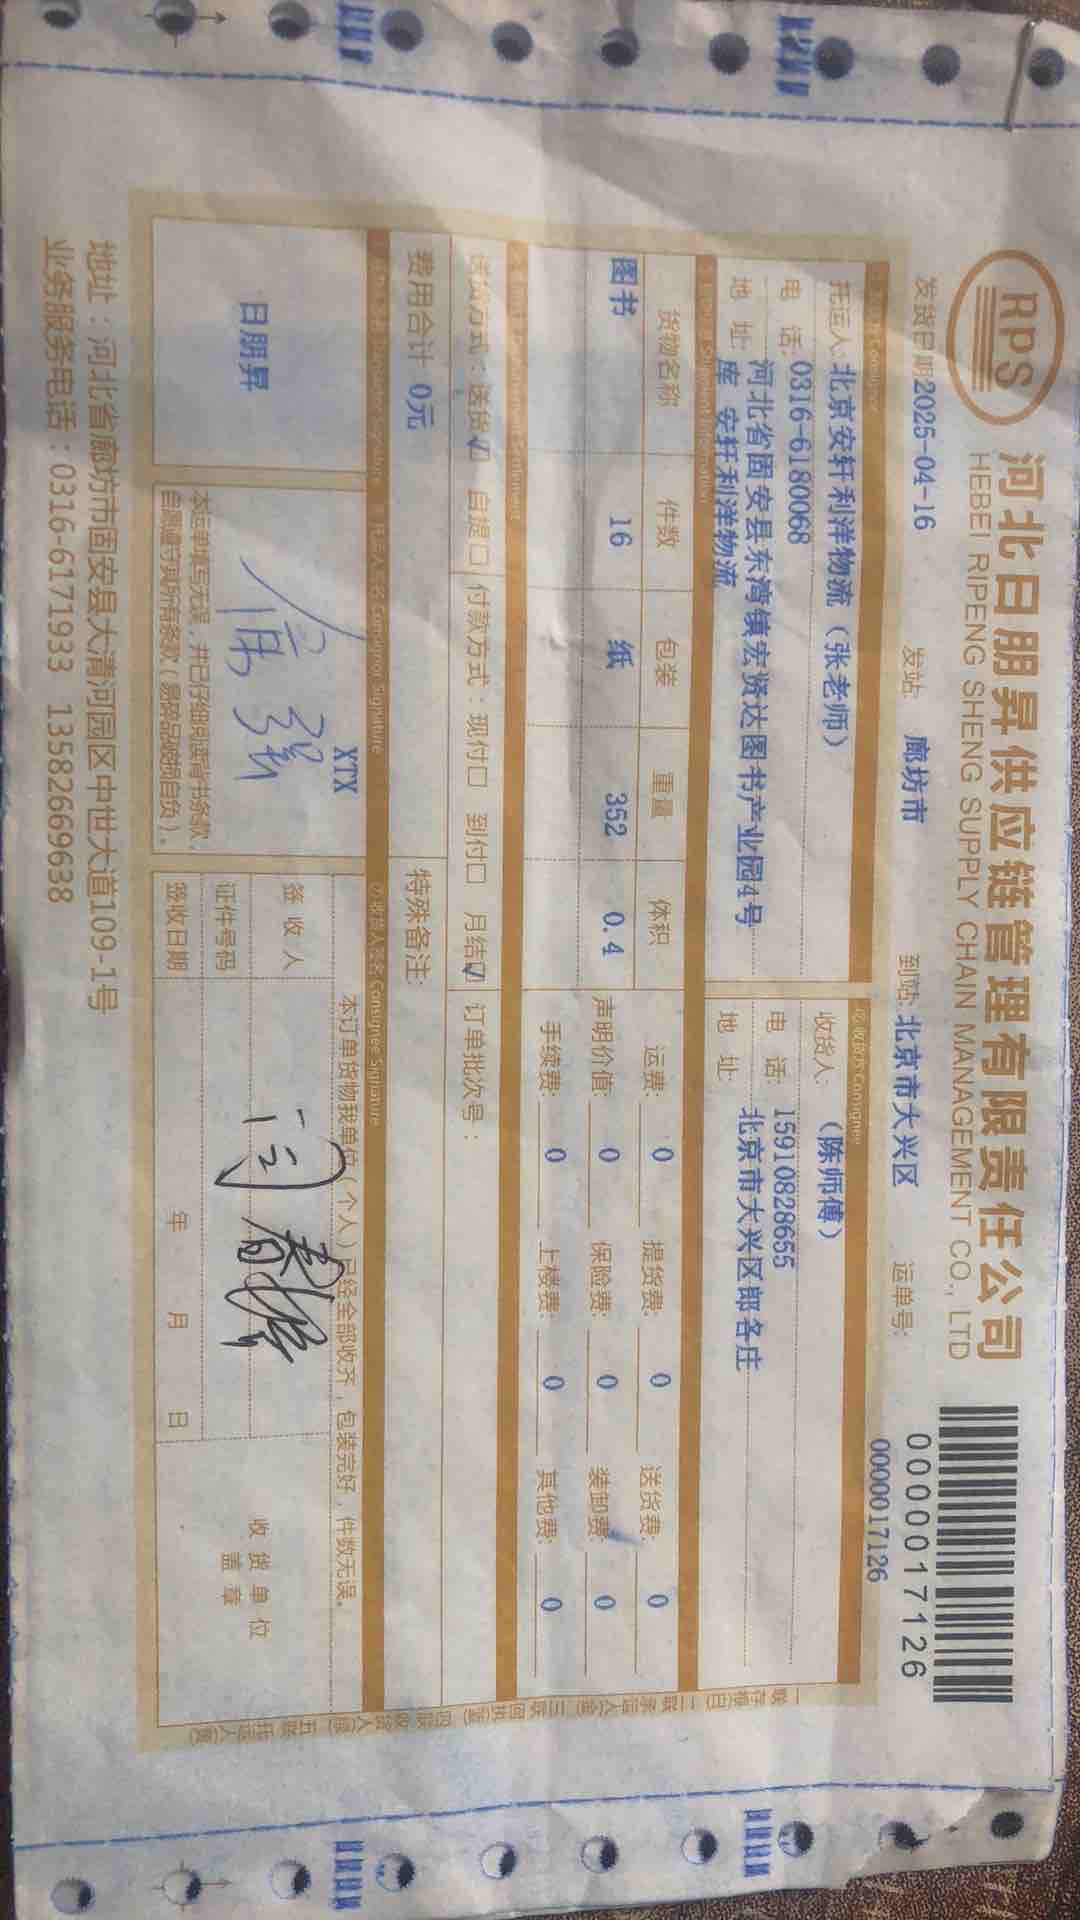 RPS
河北日朋昇供应链管理有限责任公司
HEBEI RIPENG SHENG SUPPLY CHAIN MANAGEMENT CO., LTD
0000017126
发货日期2025-04-16 发站: 廊坊市 到站: 北京市大兴区 运单号: 0000017126
托运人:北京安轩利洋物流（张老师）
电 话: 0316-6180068
地 址: 河北省固安县东湾镇宏贤达图书产业园4号
库 安轩利洋物流
收货人Consignee
收货人: （陈师傅）
电 话: 15910828655
地 址: 北京市大兴区郎各庄
货物名称 件数 包装 重量 体积
图书 16 纸 352 0.4
运费: 0 提货费: 0 送货费: 0
声明价值: 0 保险费: 0 装卸费: 0
手续费: 0 上楼费: 0 其他费: 0
送货方式：送货☑ 自提□ 付款方式：现付□ 到付□ 月结☑ 订单批次号：
费用合计 0元 特殊备注:
托运人签名 Consignor Signature
收货人签名 Consignee Signature
日朋昇
XTX
本运单填写无误，并已仔细阅读背书条款，
自愿遵守其所有条款（易碎品破损自负）。
本订单货物我单位（个人）已经全部收齐，包装完好，件数无误。
签 收 人
证件号码
签收日期 年 月 日
收 货 单 位
盖 章
地址：河北省廊坊市固安县大清河园区中世大道109-1号
业务服务电话：0316-6171933 13582669638